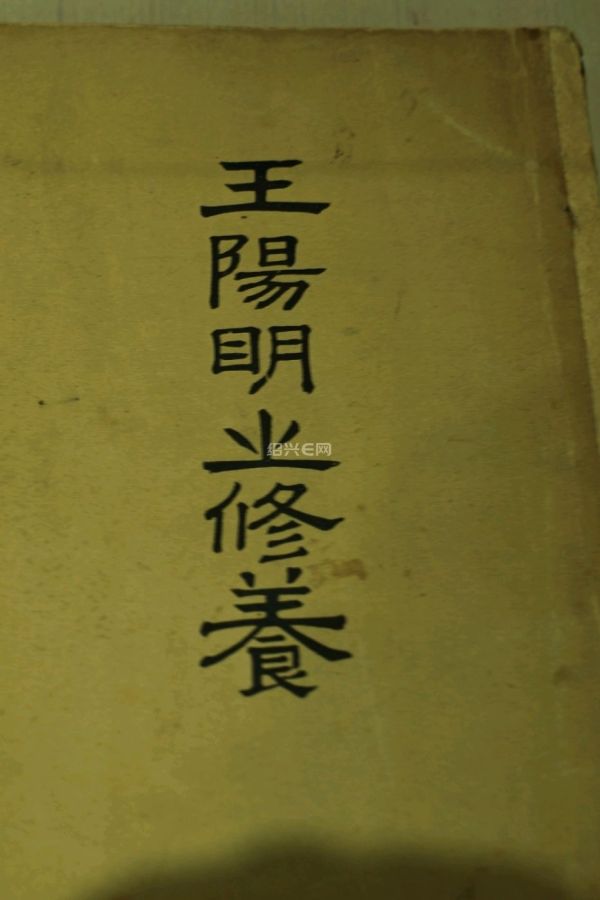 王陽明之修養
绍兴E网